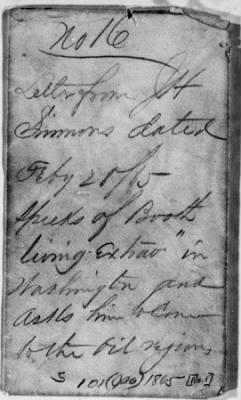 No 16
Letter from JH
Simmons dated
Feby 20/65
Speeks of Booth
living "Extrav" in
Washington and
Asks him to Come
to the Oil regions
S 101 (JAO) 1865 [No.1]